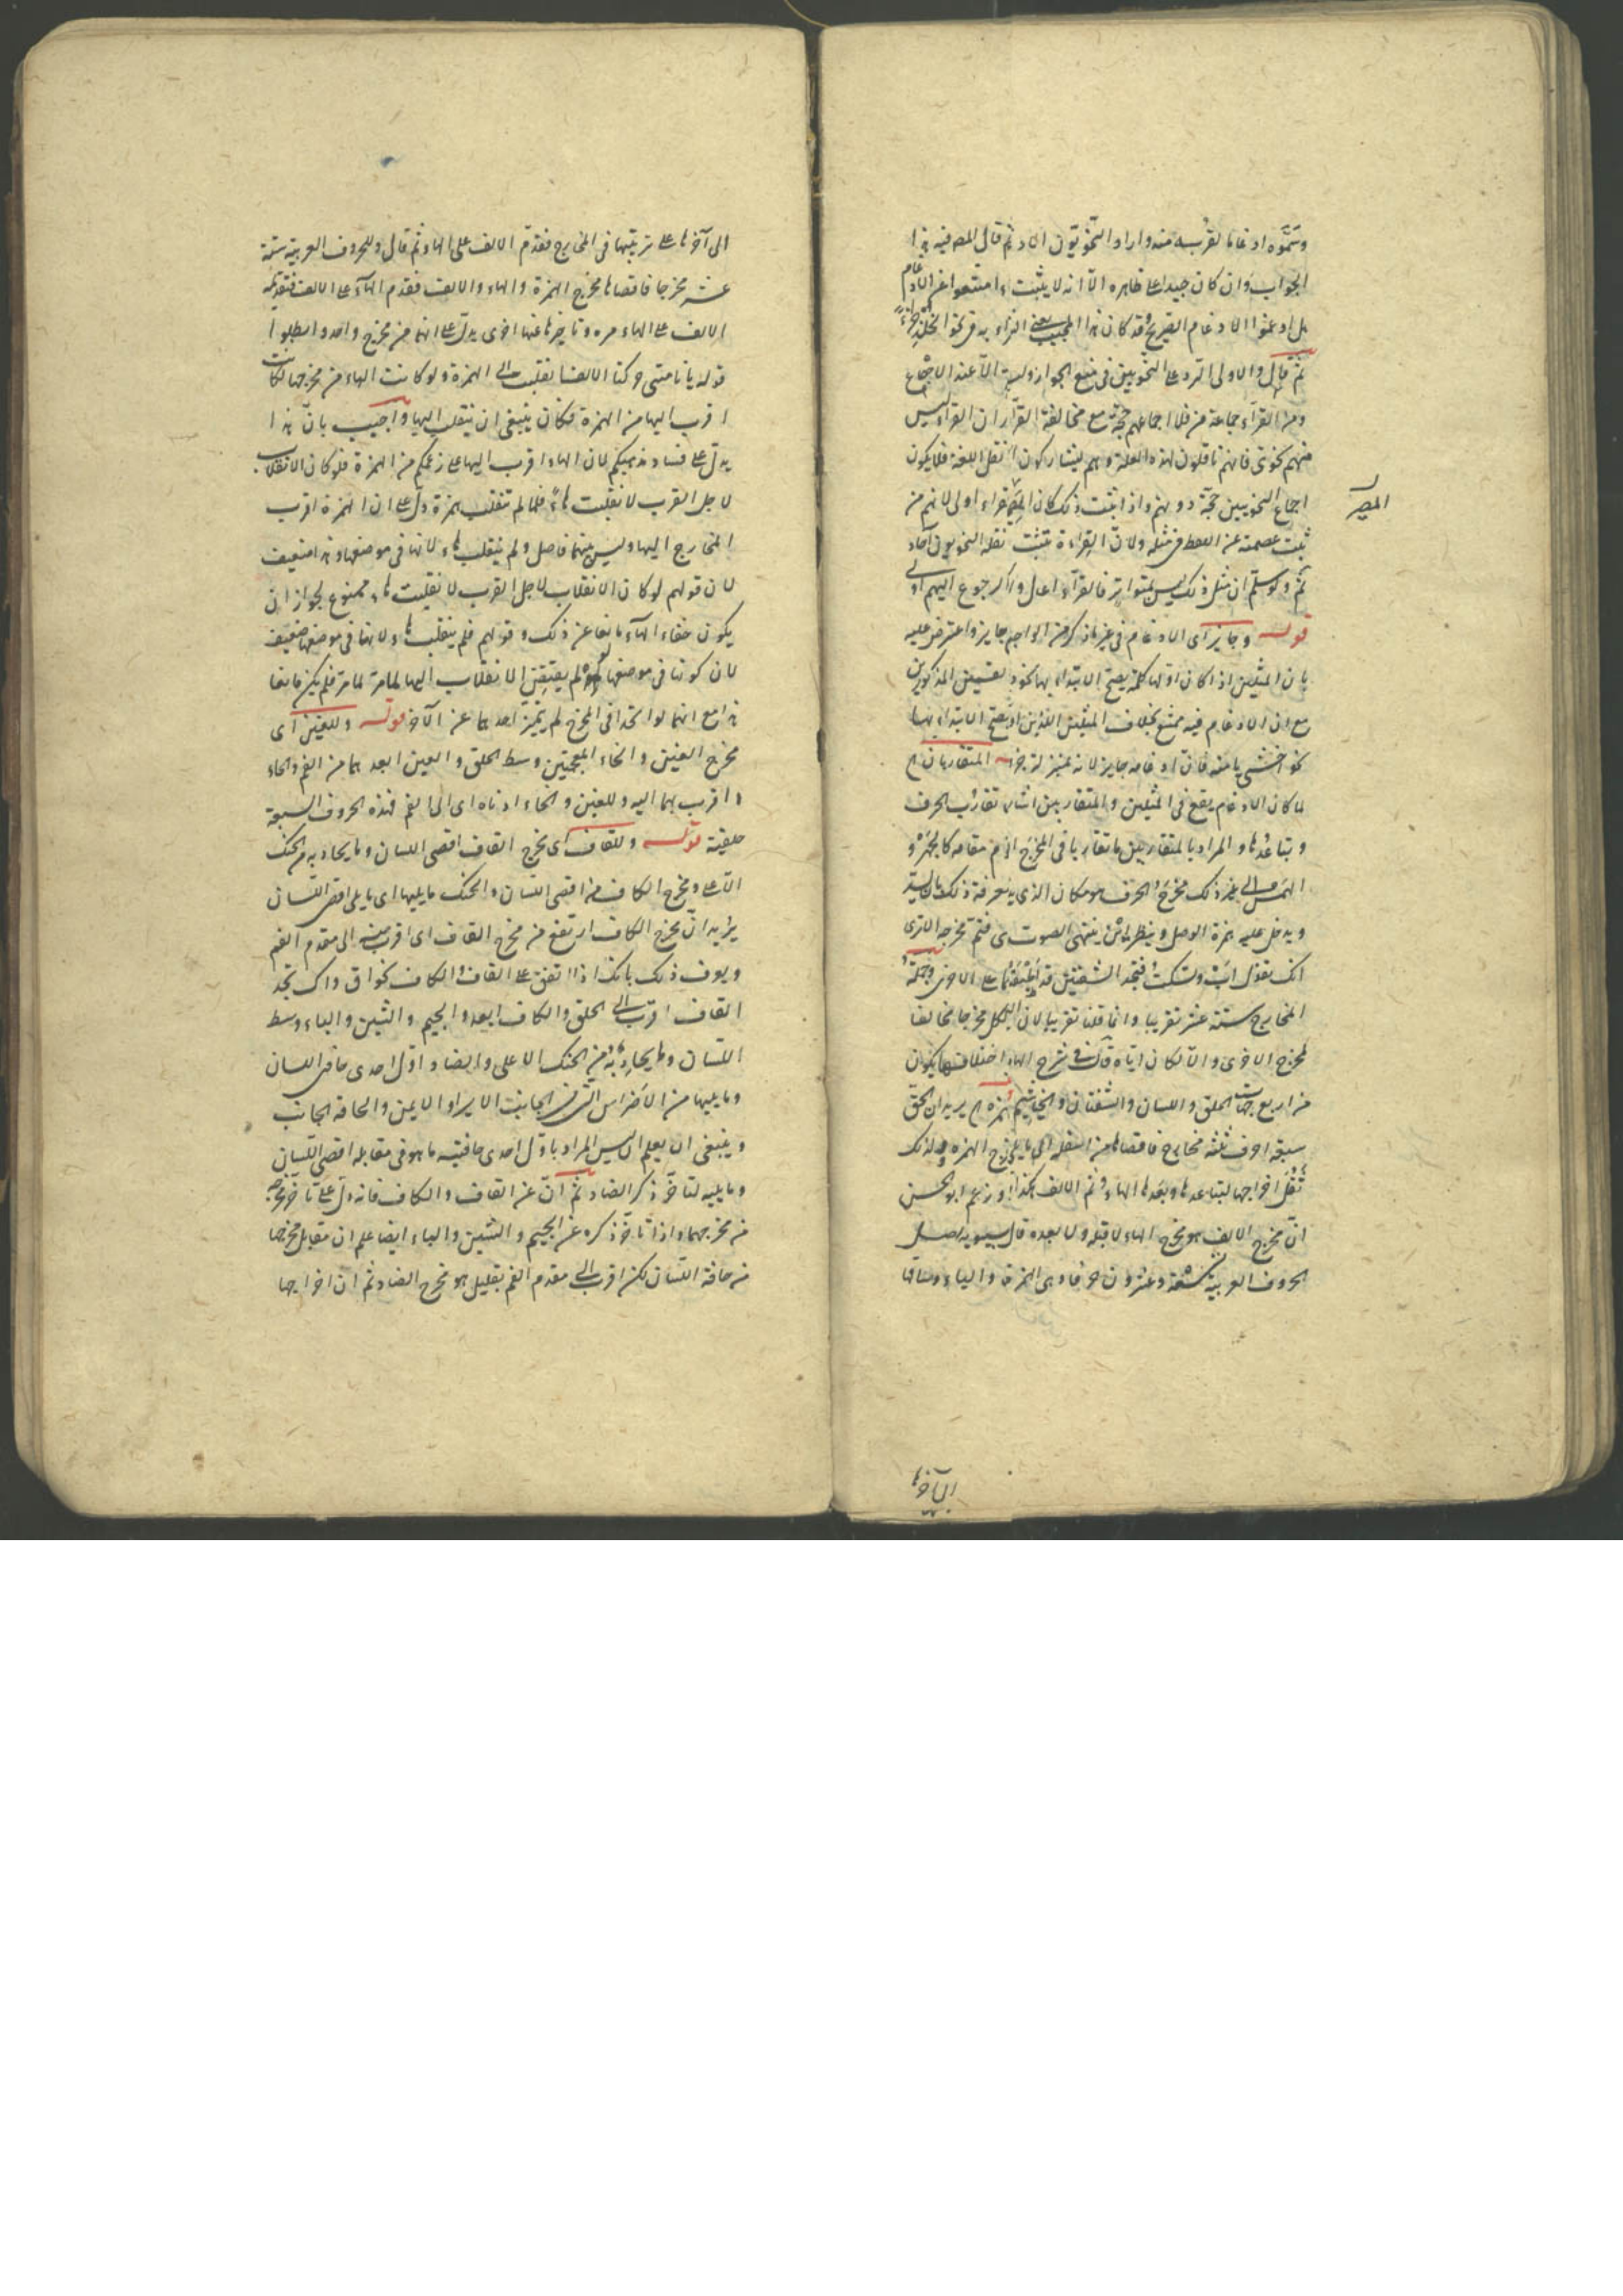 وسموه ادغاما لقربه منه واراد النحويون الاد ثم قال المص فيه هذا
الجواب وان كان جيدا على ظاهره الا انه لا يثبت امتنعوا عن الادغام
بل ادغموا الادغام الصريح وقد كان هذا المجيب يعني
ثم قال والاولى الرد على النحويين في منع الجواز وليس الا عند الاجماع
ومن القراء جماعة من فلا اجماعهم حجة مع مخالفة القراء ان القراء ليس
منهم نحوى فانهم ناقلون لهذه اللغة وهم يشاركون نقل اللغة فلا يكون
اجماع النحويين حجة دونهم واذا ثبت ذلك كان القراء اولى لانهم من
المصير
ثبت عصمته عن الغلط في مثله ولان القراءة تثبت نقله النحويون آحاد
ثم ولو سلم ان مثل ذلك ليس بمتواتر فالقراء اعدل و اكثر رجوع اليهم اولى
قوله وجايز اى الادغام في غير ما ذكر من الواجب جايز واعترض عليه
بان المثلين اذا كان اولها كلمة يصح الابتداء بها نحو المذكورين
مع ان الادغام فيه ممتنع بخلاف المثلين اللذين لا يصح الابتداء بهما
نحو اخشى يا منه فان ادغامه جايز لانه بمنزلة جزء المتقاربان
لما كان الادغام يقع في المثلين والمتقاربين اشار تقارب الحرف
وتباعدها والمراد بالمتقاربين ما تقاربا في المخرج او في مقامه كالجهر و
الهمس الى غير ذلك مخرج الحرف هو مكان الذى معرفة ذلك بان
ويدخل عليه همزة الوصل وينظر اين ينتهى الصوت فثم مخرجه الا ترى
انك تقول اب وتسكت فتجد الشفتين قد على الاخرى وجملة
المخارج ستة عشر تقريبا وانما قلنا تقريبا لان لكل مخرجا مخالفا
لمخرج الاخرى والا لكان اياه قال في شرح الهادى اختلافها يكون
من اربع جهات الحلق واللسان والشفتان والخياشيم همزة يريد ان الحلق
سبعة احرف ثلثة مخارج فاقصاها من اسفله الى ما يلي الهمزة ولذلك
ثقل اخراجها لتباعدها وبعدها الهاء ثم الالف هكذا وزعم ابو الحسن
ان مخرج الالف هو مخرج الهاء لا قبله ولا بعده قال سيبويه اصل
الحروف العربية تسعة وعشرون حرفا وهى الهمزة والهاء وساقها
الى آخرها
الى آخرها على ترتيبها في المخارج فقدم الالف على الهاء ثم قال وللحروف العربية ستة
عشر مخرجا فاقصاها مخرج الهمزة والهاء والالف فقدم الهاء على الالف فتقديم
الالف على الهاء مرة وتاخيرها عنها اخرى يدل على انهما من مخرج واحد وابطلوا
قوله بانا متى حركنا الالف انقلبت الى الهمزة ولو كانت الهاء من مخرجها لكانت
اقرب اليها من الهمزة فكان ينبغى ان ينقلب اليها واجيب بان هذا
يدل على فساد مذهبكم لان الهاء اقرب اليها على زعمكم من الهمزة فلو كان الانقلاب
لاجل القرب لانقلبت هاء فلما لم تنقلب همزة دل على ان الهمزة اقرب
المخارج اليها وليس بينهما فاصل ولم ينقلب هاء لانها في موضعها وهذا ضعيف
لان قولهم لو كان الانقلاب لاجل القرب لانقلبت هاء ممنوع لجواز ان
يكون خفاء الهاء مانعا عن ذلك وقولهم فلم ينقلب هاء لانها في موضعها ضعيف
لان كونها في موضعها لو لم يقتض الانقلاب اليها لما مر فلم يكن مانعا
هذا مع انهما لو اتحدا في المخرج لم يتميز احدهما عن الآخر قوله وللعين اى
مخرج العين والحاء المعجمتين وسط الحلق والعين ابعدهما من الفم والحاء
اقربهما اليه وللغين والخاء ادناه اى الى الفم فهذه الحروف السبعة
حلقية قوله وللقاف اى مخرج القاف اقصى اللسان وما يحاذيه من الحنك
الاعلى ومخرج الكاف من اقصى اللسان والحنك ما يليها اى ما يلى اقصى اللسان
يريد ان مخرج الكاف ارتفع من مخرج القاف اى اقرب منه الى مقدم الفم
ويعرف ذلك بانك اذا تقف على القاف والكاف نحو اق واك تجد
القاف اقرب الى الحلق والكاف ابعد والجيم والشين والياء وسط
اللسان وما يحاذيه من الحنك الاعلى والضاد اول احدى حافتى اللسان
وما يليها من الاضراس التى في الجانب الايسر او الايمن والحافة الجانب
وينبغى ان يعلم ان ليس المراد باول احدى حافتيه ما هو في مقابله اقصى اللسان
وما يليه لتاخر ذكر الضاد ثم ان عن القاف والكاف فانه دل على تاخر مخرجه
من مخرجهما واذا تاخر ذكره عن الجيم والشين والياء ايضا علم ان مقابل مخرجها
من حافة اللسان لكن اقرب الى مقدم الفم بقليل هو مخرج الضاد ثم ان اخراجها